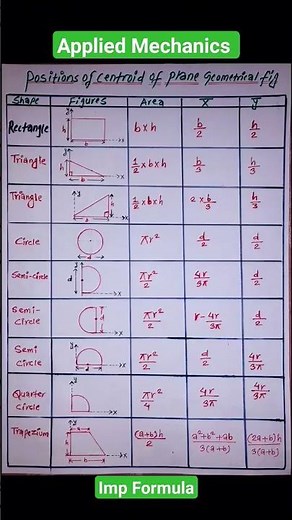 Applied Mechanics
Positions of centroid of plane Geometrical fig
Shape Figures Area x̄ ȳ
Rectangle y h b x b×h b/2 h/2
Triangle y h b x 1/2×b×h b/3 h/3
Triangle y h b x 1/2×b×h 2×b/3 h/3
Circle πr² d/2 d/2
Semi-circle y d x πr²/2 4r/3π d/2
Semi-circle d πr²/2 r-4r/3π d/2
Semi circle d πr²/2 d/2 4r/3π
Quarter circle y x πr²/4 4r/3π 4r/3π
Trapezium y a h b x (a+b)h/2 a²+b²+ab/3(a+b) (2a+b)h/3(a+b)
Imp Formula